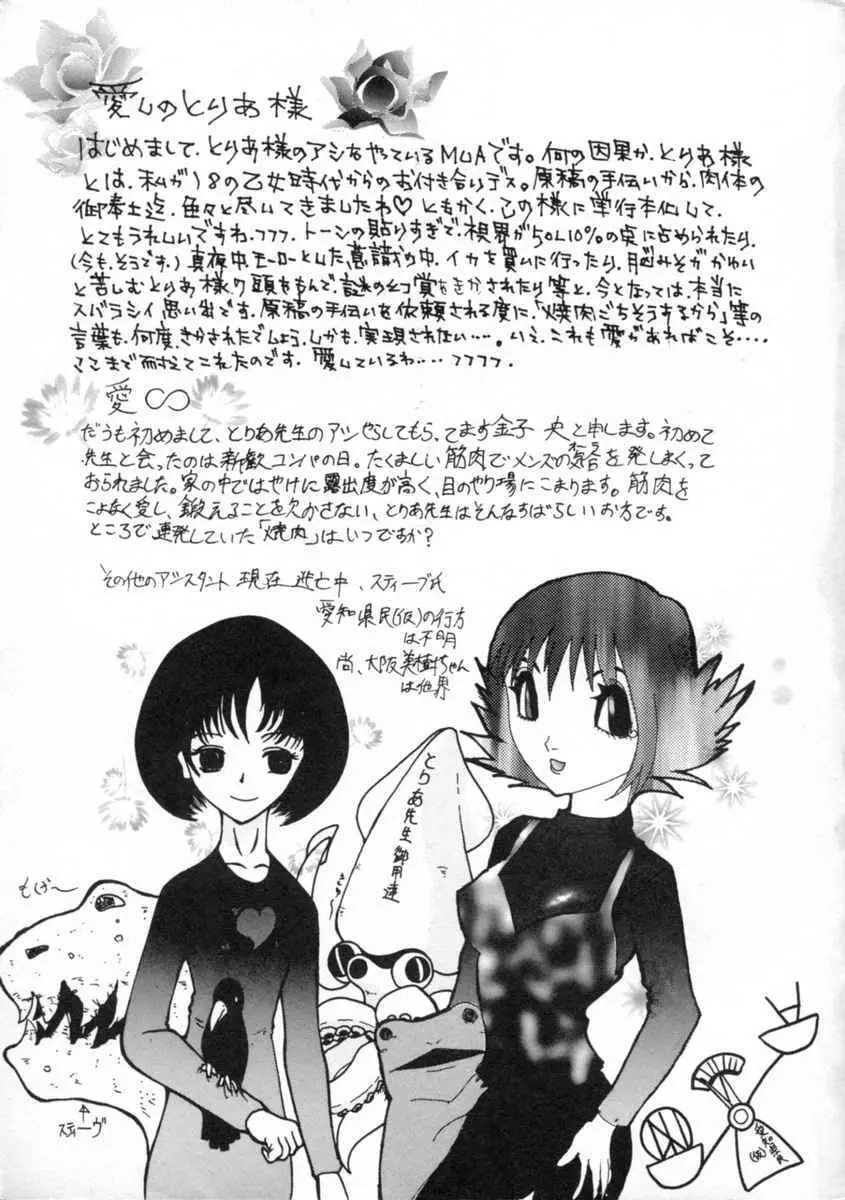 愛しのとりあ様
はじめまして、とりあ様のアシをやっているMUAです。何の因果か、とりあ様
とは、私が18の乙女時代からのお付き合いデス。原稿の手伝いから、肉体の
御奉仕迄、色々と尽してきましたわ♡ともかく、この様に単行本化して、
とてもうれしいですね、フフフ。トーンの貼りすぎで、視界が50L10%の点に占められたり、
(今も、そうです。)真夜中、モーローとした意識の中、イカを買いに行ったり、脳みそがかゆい
と苦しむとりあ様の頭をもんで、謎の幻覚をきかされたり等と、今となっては、本当に
スバラシイ思い出です。原稿の手伝いを依頼される度に、「焼肉ごちそうするから」等の
言葉も、何度、きかされたでしょう、しかも、実現されない‥‥。いえ、これも愛があればこそ‥‥
ここまで耐えてこれたのです。愛しているわ‥‥フフフフ.
愛∞
だうも初めまして、とりあ先生のアシやらしてもらってます金子 央と申します。初めて
先生と会ったのは新歓コンパの日。たくましい筋肉でメンズの気合を発しまくって
おられました。家の中ではやけに露出度が高く、目のやり場にこまります。筋肉を
こよなく愛し、鍛えることを欠かさない、とりあ先生はそんなすばらしいお方です。
ところで連発していた「焼肉」はいつですか?
その他のアシスタント 現在逃亡中、スティーブ氏
愛知県民(仮)の行方
は不明
尚、大阪美樹ちゃん
は他界
とりあ先生御用達
もげ〜
↑
スティーヴ
愛知県民
(仮)